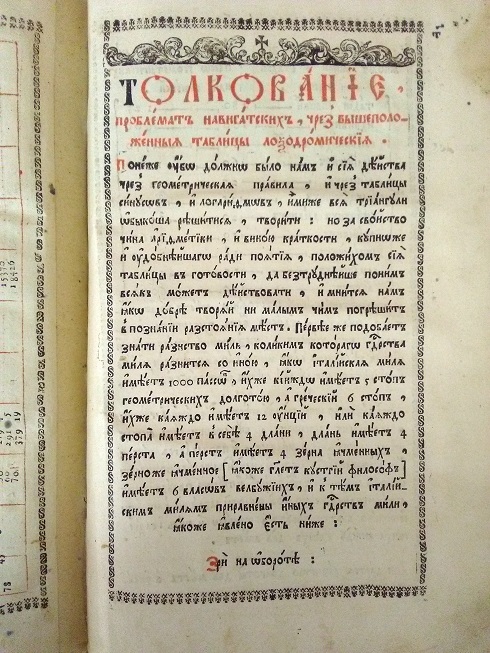 ТОЛКОВА́НЇЕ.
проблє́матъ навига́тскихъ, чрез вышеполо-
жє́нныѧ таблицы локѯодромическїѧ.
Понє́же ѹ҆́бѡ должнѡ было намъ и҆ сїѧ̑ дѣ́йства
чрез геѡметрическаѧ правила, и҆ чрез таблицы
синусѡвъ, и҆ логари́ѳмѡвъ, и҆миже всѧ трїа́нгули
ѡ҆бы́коша рѣши́тисѧ, твори́ти: но за сво́йство
чи́на а҆рїѳме́тики, и҆ вино́ю кра́ткости, ку́пнѡже
и҆ ѹ҆до́бнѣйшагѡ ра́ди поѧ́тїѧ, положи́хомъ сїѧ̑
таблицы въ гото́вости, да безтру́днѣйше пони́мъ
всѧ́къ мо́жетъ дѣ́йствовати, и҆ мни́тсѧ на́мъ
ꙗ҆́кѡ до́брѣ творѧ́й ни ма́лымъ чи́мъ погрѣши́тъ
в̾ позна́нїи разстоѧ́нїѧ мѣ́стъ. Пе́рвѣе же подоба́етъ
зна́ти ра́знство ми́ль, коли́кимъ кото́рагѡ гдⷭ҇рства
ми́лѧ ра́знитсѧ со и҆но́ю, ꙗ҆́кѡ і҆талїйскаѧ ми́лѧ
и҆мѣ́етъ 1000 па́ссѡвъ, и҆́хже кі́йждѡ и҆мѣ́етъ 5 сто́пъ
геѡметри́ческихъ долгото́ю, а҆ гре́ческїй 6 сто́пъ,
и҆́хже ка́ѧждо и҆мѣ́етъ 12 ѹ҆́нцїй, и҆лѝ ка́ѧждо
стопа̀ и҆мѣ́етъ в̾ себѣ̀ 4 дла́ни, дла́нь и҆мѣ́етъ 4
пе́рста, а҆ пе́рстъ и҆мѣ́етъ 4 зе́рна ꙗ҆чме́нныхъ,
зе́рноже ꙗ҆чме́нное [ꙗ҆́коже гл҃етъ кустгїй філосо́фъ]
и҆мѣ́етъ 6 вла́сѡвъ велбу́жїихъ, и҆ к̾ тѣ́мъ і҆талїй-
скимъ ми́лѧмъ приравне́ны и҆́ныхъ гдⷭ҇рствъ ми́ли,
ꙗ҆́коже ꙗ҆вле́но є҆́сть ни́же:
Зрѝ на ѡ҆боро́тѣ:
15370
18426
5
291
379 19
60
681
78